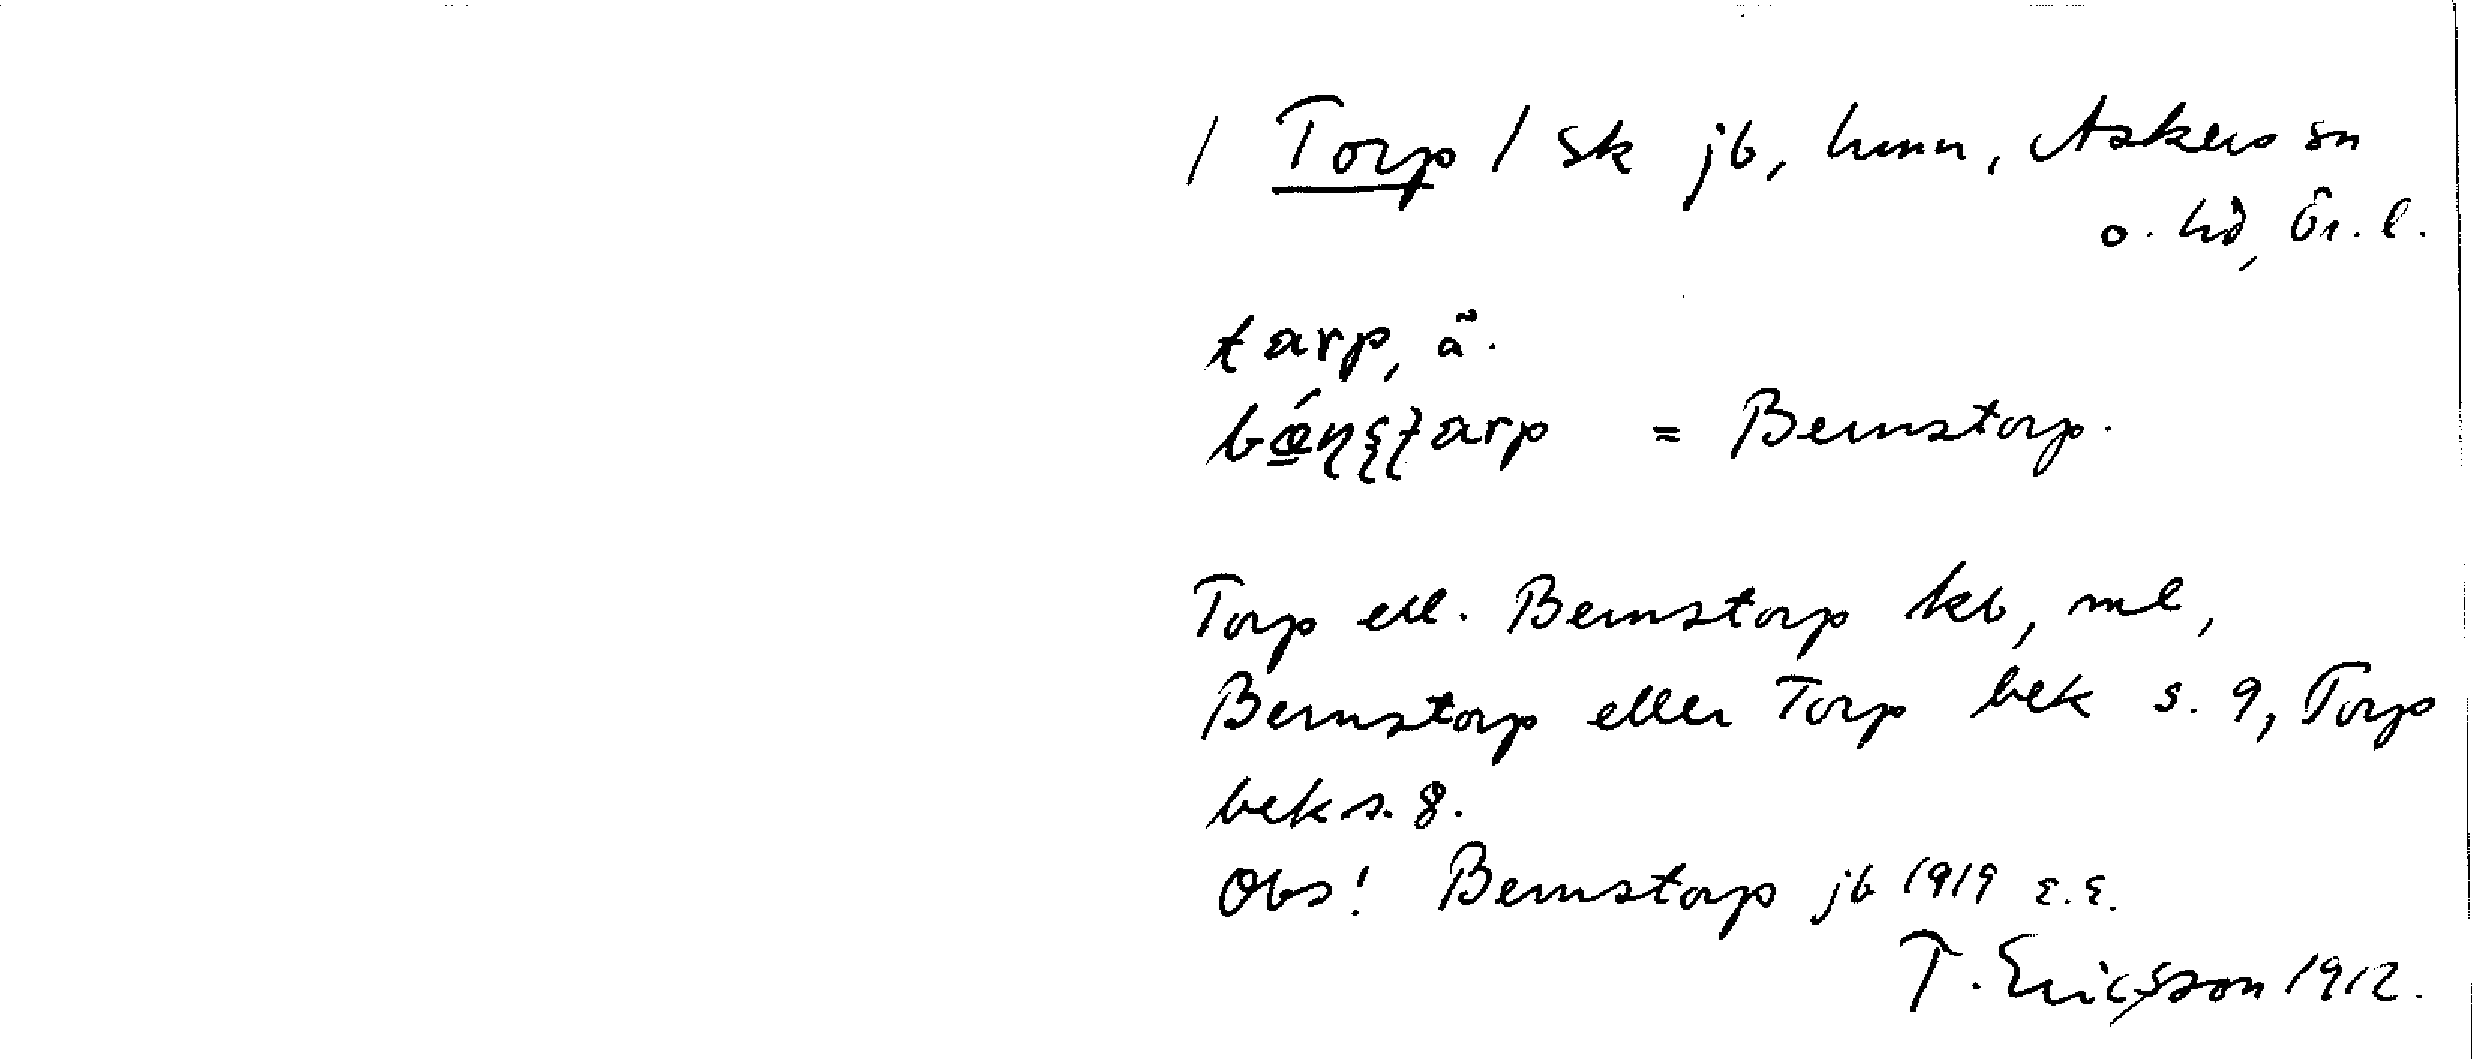 / Torp / sk jb, hmn, Askers sn
o. hd, Ör. l.
tarp, ã.
= Bernstorp.
Torp ell. Bernstorp kb, ml,
Bernstorp eller Torp bek s. 9, Torp
bek s. 8.
Obs! Bernstorp jb 1919 ε.ε.
T. Ericsson 1912.